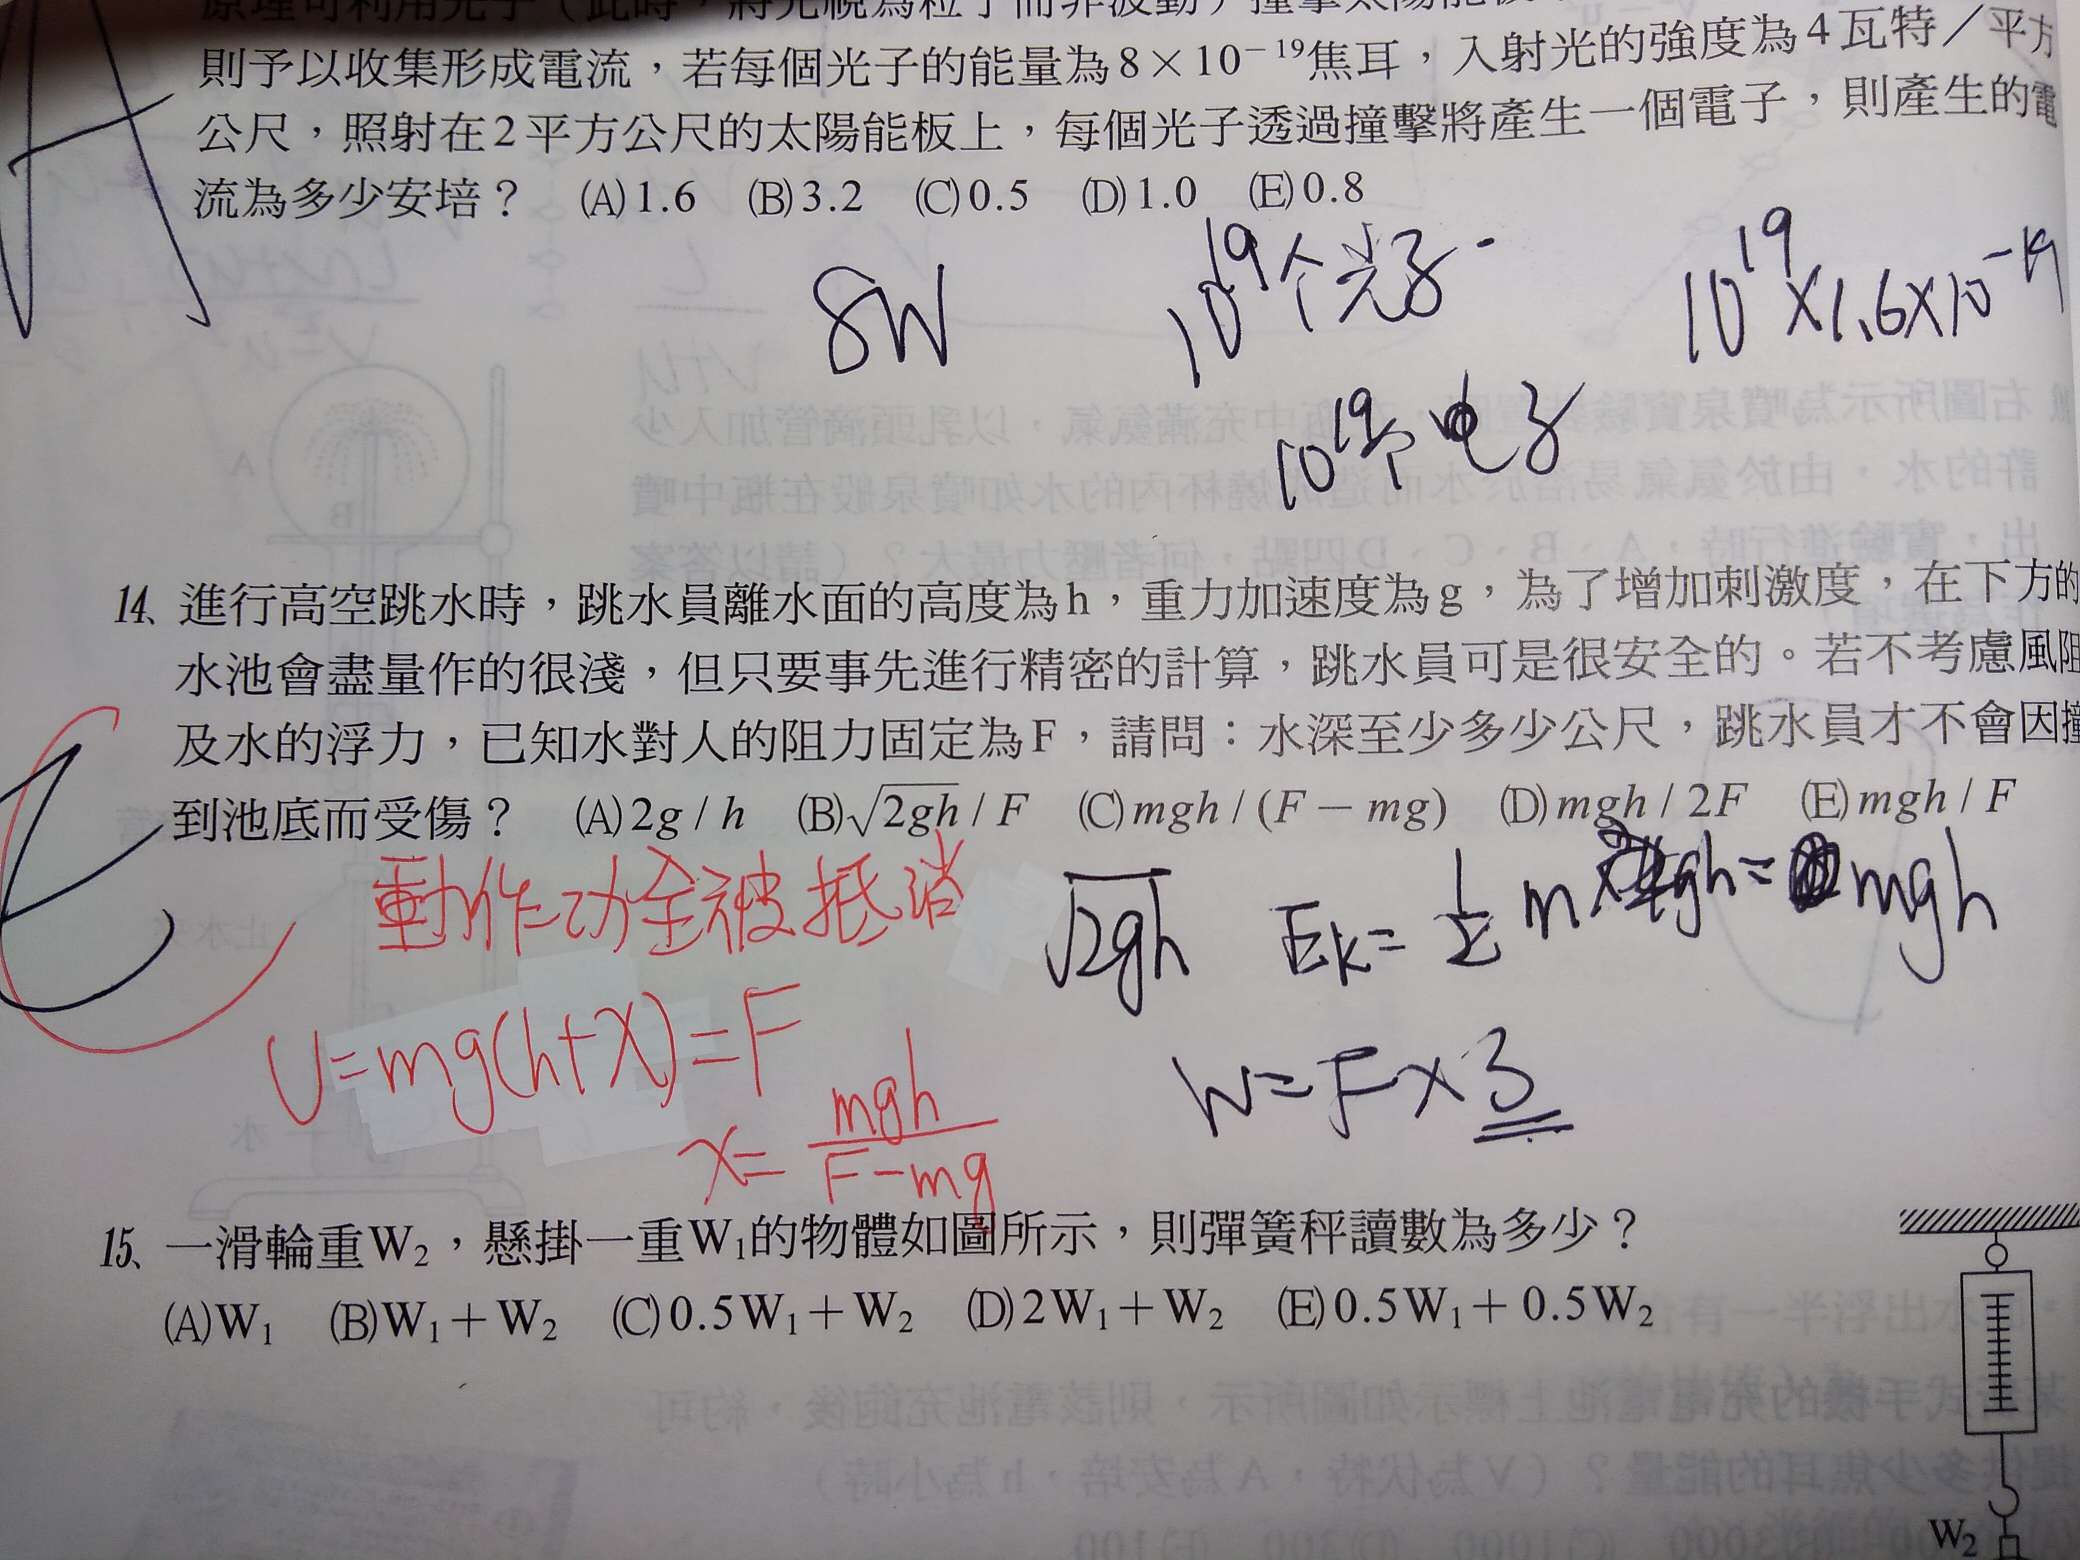 原理可利用光子（此時，將光視為粒子而非波動）撞擊太陽能板
則予以收集形成電流，若每個光子的能量為8×10⁻¹⁹焦耳，入射光的強度為4瓦特／平方
公尺，照射在2平方公尺的太陽能板上，每個光子透過撞擊將產生一個電子，則產生的電
流為多少安培？ (A)1.6 (B)3.2 (C)0.5 (D)1.0 (E)0.8
A
8W
10¹⁹个光子
10¹⁹×1.6×10⁻¹⁹
10¹⁹个电子
14、進行高空跳水時，跳水員離水面的高度為h，重力加速度為g，為了增加刺激度，在下方的
水池會盡量作的很淺，但只要事先進行精密的計算，跳水員可是很安全的。若不考慮風阻
及水的浮力，已知水對人的阻力固定為F，請問：水深至少多少公尺，跳水員才不會因撞
到池底而受傷？ (A)2g/h (B)√2gh/F (C)mgh/(F－mg) (D)mgh/2F (E)mgh/F
E
C
動作功全被抵消
√2gh
Eₖ=½m×2gh=mgh
U=mg(h+x)=F
W=F×3
x=mgh/F-mg
15、一滑輪重W₂，懸掛一重W₁的物體如圖所示，則彈簧秤讀數為多少？
(A)W₁ (B)W₁＋W₂ (C)0.5W₁＋W₂ (D)2W₁＋W₂ (E)0.5W₁＋0.5W₂
W₂